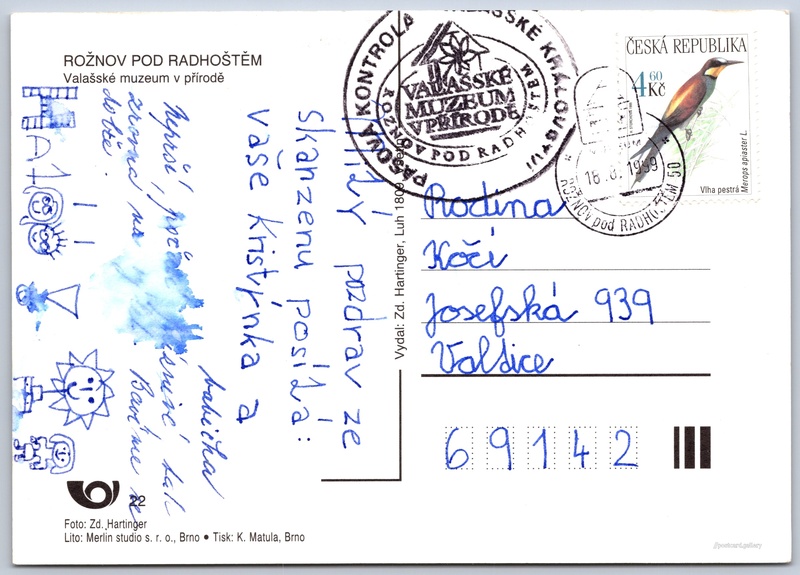 ROŽNOV POD RADHOŠTĚM
Valašské muzeum v přírodě
MILÝ pozdrav ze
skanzenu posílá:
vaše Kristýnka a
babička
Neprší,
zrovna na
Bavíme se
dobře.
Vydal: Zd. Hartinger, Luh 1809
PASOVÁ KONTROLA VALAŠSKÉ KRÁLOVSTVÍ
VALAŠSKÉ
MUZEUM
V PŘÍRODĚ
ROŽNOV POD RADHOŠTĚM
ČESKÁ REPUBLIKA
4 60
Kč
Vlha pestrá
Merops apiaster L.
1999
ROŽNOV pod RADHOŠTĚM 50
Rodina
Kočí
Josefská 939
Valdice
69142
22
Foto: Zd. Hartinger
Lito: Merlin studio s. r. o., Brno • Tisk: K. Matula, Brno
//postcard.gallery